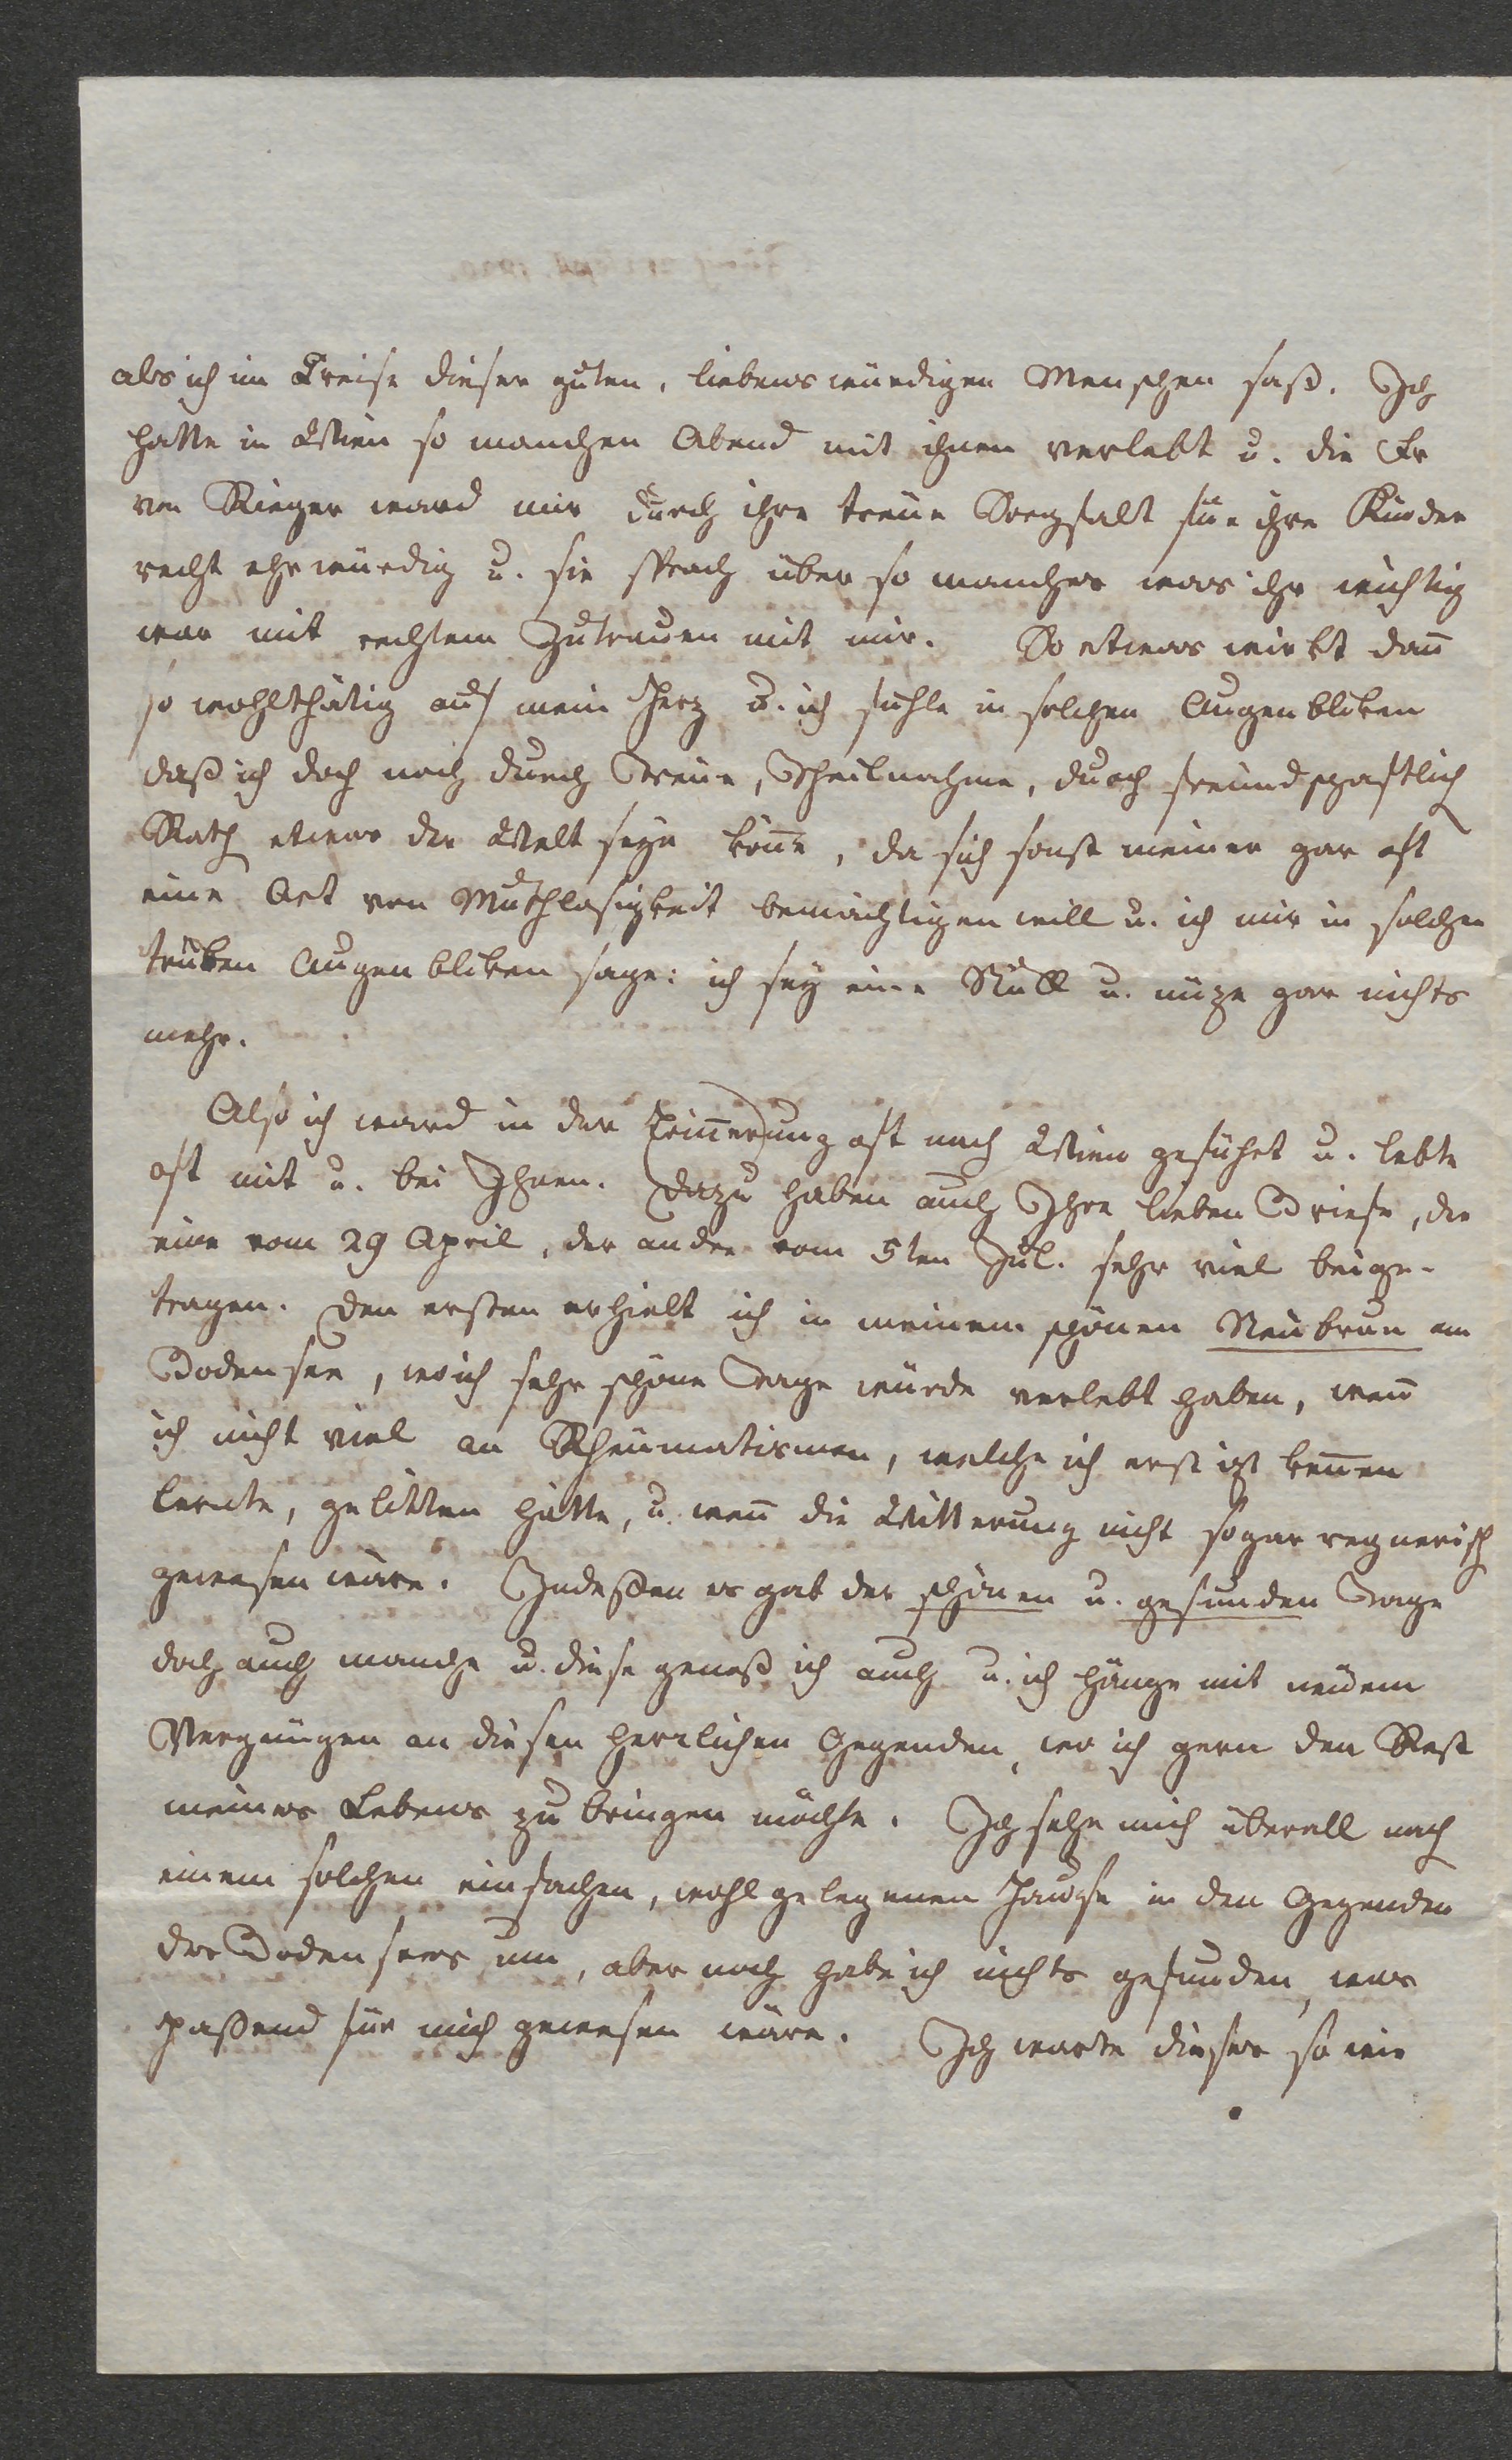 als ich im Kreise dieser guten, liebenswürdigen Menschen saß. Ich
hatte in Wien so manchen Abend mit ihnen verlebt u. die Fr
von Rieger ward mir durch ihre treue Sorgfalt für ihre Kinder
recht ehrwürdig u. sie sprach über so manches was ihr wichtig
war mit rechtem Zutrauen mit mir. So etwas wirkt dan̄
so wohlthätig auf mein Herz u. ich fühle in solchen Augenbliken
daß ich doch noch durch Treue, Theilnahme, durch freundschaftlich
Rath etwas der Welt seyn kön̄e, da sich sonst meiner gar oft
eine Art von Muthlosigkeit bemächtigen will u. ich mir in solchen
trüben Augenbliken sage: ich sey eine Null u. nüze gar nichts
mehr.
Also ich ward in der Erin̄erung oft nach Wien geführt u. lebte
oft mit u. bei Ihnen. Dazu haben auch Ihre lieben Briefe, der
eine vom 29 April, der andre vom 5ten Jul. sehr viel beige-
tragen. Den ersten erhielt ich in meinem schönen Neubrun am
Bodensee, wo ich sehr schöne Tage würde verlebt haben, wen̄
ich nicht viel an Rheumatismen, welche ich erst izt ken̄en
lernte, gelitten hätte, u. wen̄ die Witterung nicht sogar regnerisch
gewesen wäre. Indeßen es gab der schönen u. gesunden Tage
doch auch manche u. diese genoß ich auch u. ich hänge mit neuem
Vergnügen an diesen herrlichen Gegenden, wo ich gern den Rest
meines Lebens zubringen möchte. Ich sehe mich überall nach
einem solchen einfachen, wohlgelegenen Hause in den Gegenden
des Bodensees um, aber noch habe ich nichts gefunden, was
paßend für mich gewesen wäre. Ich warte dieses so wie